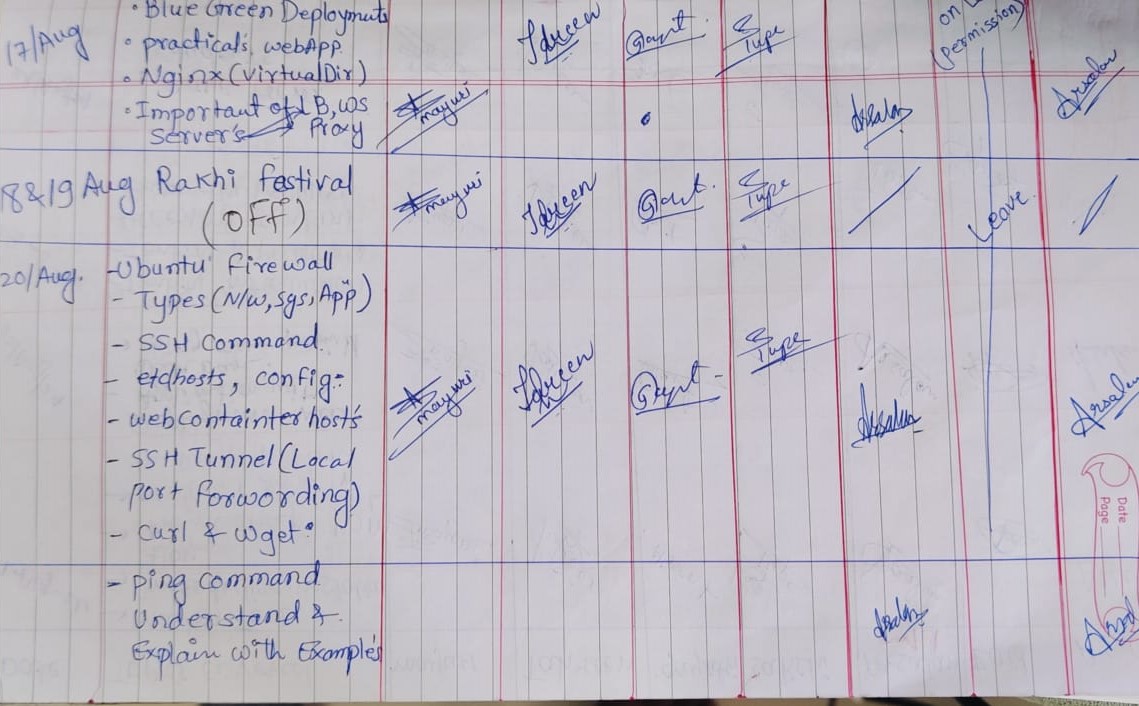 17/Aug
• Blue Green Deployments
• practicals, webApp
• Nginx (VirtualDir)
• Important of LB, WS
Server's Proxy
mayuri
Arsalan
on
(permission)
Arsalan
18&19 Aug Rakhi festival
(Off)
mayuri
Leave
20/Aug.
- Ubuntu Firewall
- Types (N/w, sgs, App)
- SSH Command.
- etc/hosts, config:-
- web containter hosts
- SSH Tunnel (Local
port forwording)
- Curl & Wget:
mayuri
Arsalan
Arsalan
- Ping command
Understand &
Explain with Examples
Arsalan
Date
Page